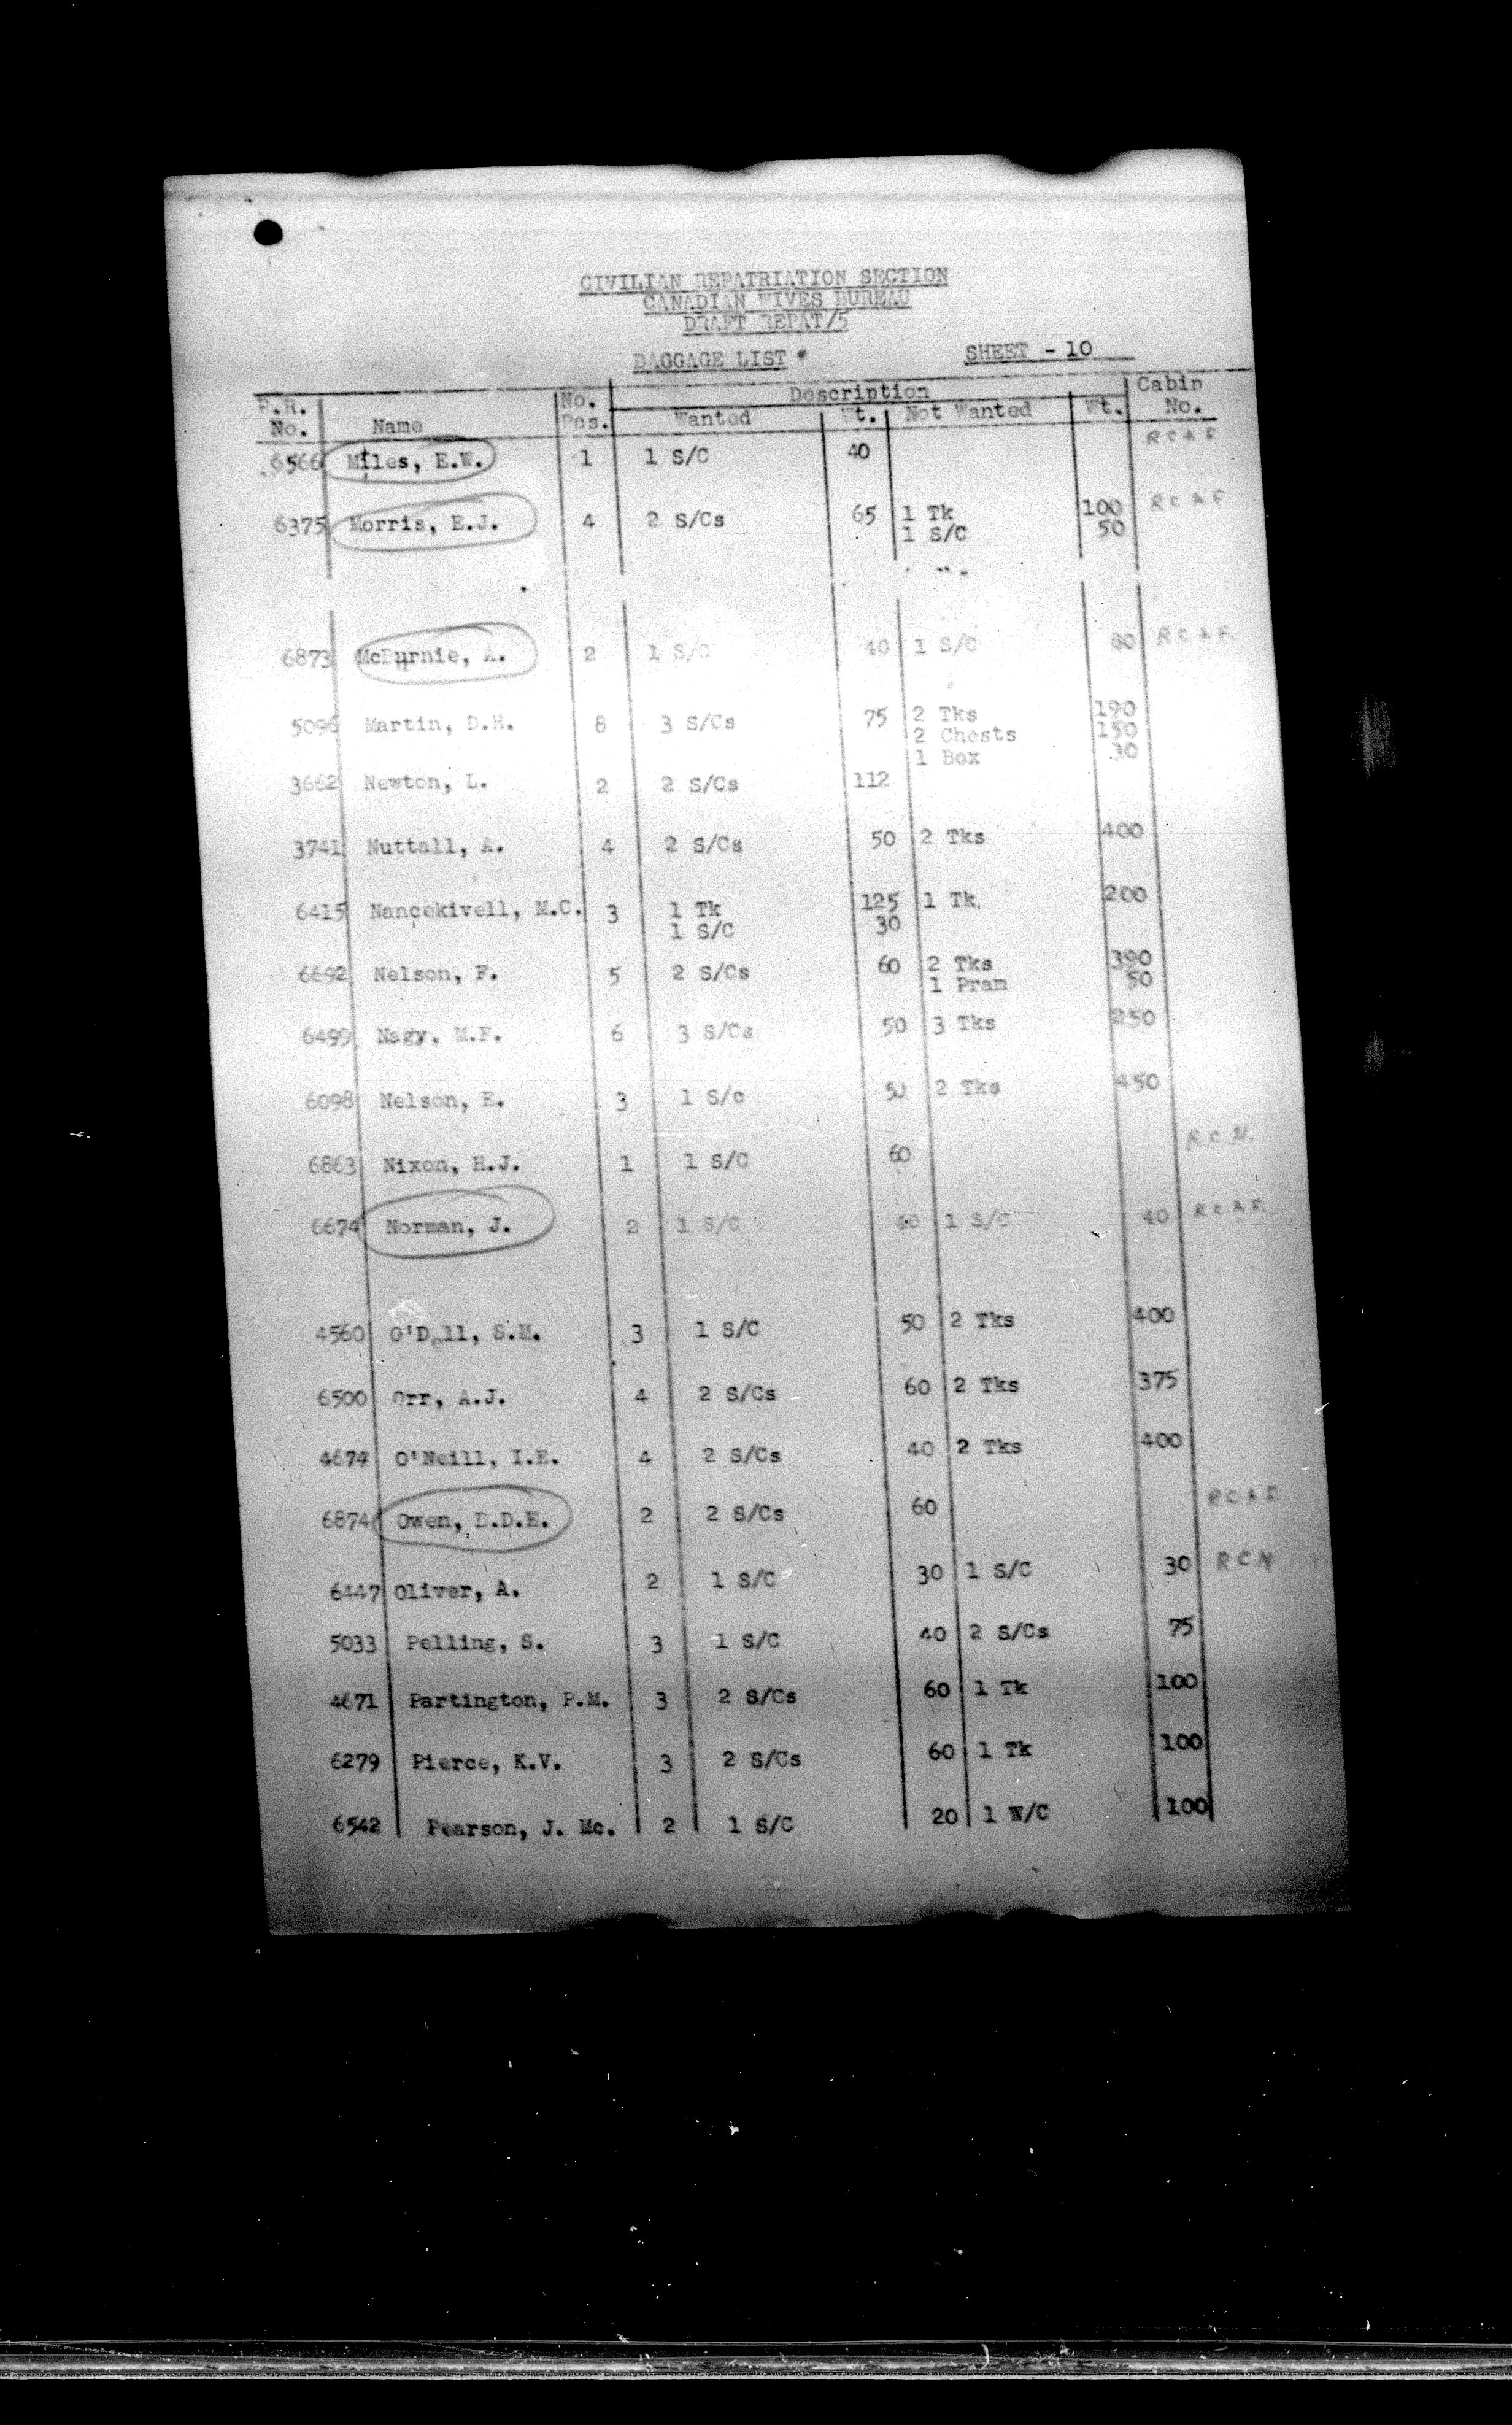 CIVILIAN REPATRIATION SECTION
CANADIAN WIVES BUREAU
DRAFT REPAT/5
BAGGAGE LIST SHEET - 10
F.R. No. Name No. Pcs. Description Wanted Wt. Not Wanted Wt. Cabin No.
6566 Miles, E.W. 1 1 S/C 40 RCAF
6375 Morris, E.J. 4 2 S/Cs 65 1 Tk 100 RCAF
1 S/C 50
6873 McBurnie, A. 2 1 S/C 40 1 S/C 60 RCAF.
5096 Martin, D.H. 8 3 S/Cs 75 2 Tks 190
2 Chests 150
1 Box 30
3662 Newton, L. 2 2 S/Cs 112
3741 Nuttall, A. 4 2 S/Cs 50 2 Tks 400
6415 Nancekivell, M.C. 3 1 Tk 125 1 Tk. 200
1 S/C 30
6692 Nelson, F. 5 2 S/Cs 60 2 Tks 390
1 Pram 50
6499 Nagy, M.F. 6 3 S/Cs 50 3 Tks 250
6098 Nelson, E. 3 1 S/c 50 2 Tks 450
6863 Nixon, H.J. 1 1 S/C 60 RCN.
6674 Norman, J. 2 1 S/C 40 1 S/C 40 RCAF.
4560 S.M. 3 1 S/C 50 2 Tks 400
6500 Orr, A.J. 4 2 S/Cs 60 2 Tks 375
4674 O'Neill, I.E. 4 2 S/Cs 40 2 Tks 400
6874 Owen, D.D.E. 2 2 S/Cs 60 RCAF
6447 Oliver, A. 2 1 S/C 30 1 S/C 30 RCN
5033 Pelling, S. 3 1 S/C 40 2 S/Cs 75
4671 Partington, P.M. 3 2 S/Cs 60 1 Tk 100
6279 Pierce, K.V. 3 2 S/Cs 60 1 Tk 100
6542 Pearson, J. Mc. 2 1 S/C 20 1 W/C 100